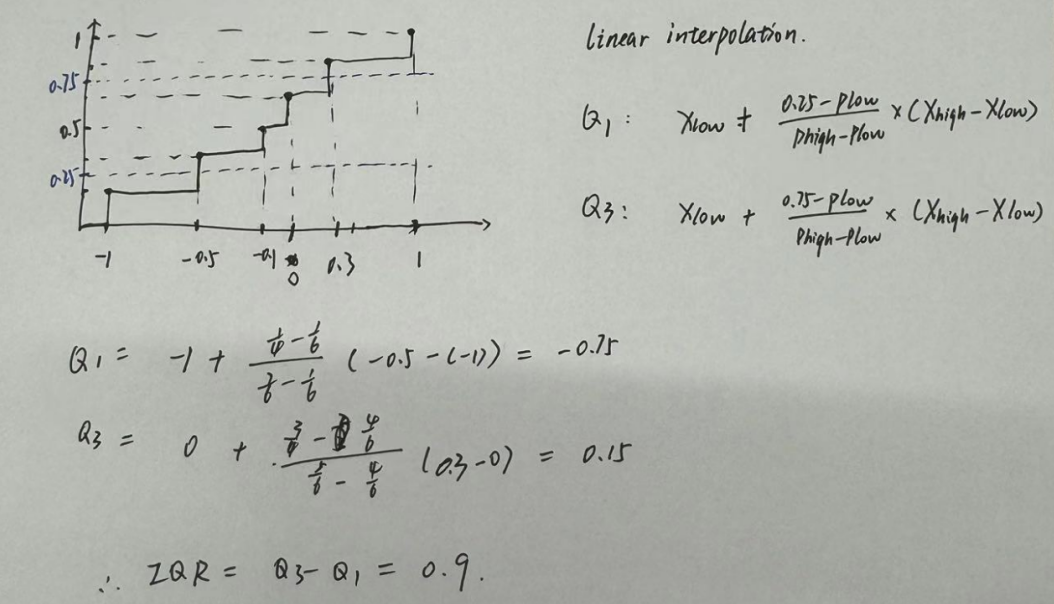 1
0.75
0.5
0.25
-1 -0.5 -0.1 0 0.3 1
linear interpolation.
Q1: Xlow + (0.25-Plow)/(Phigh-Plow) × (Xhigh-Xlow)
Q3: Xlow + (0.75-Plow)/(Phigh-Plow) × (Xhigh-Xlow)
Q1 = -1 + (1/4 - 1/6)/(2/6 - 1/6) (-0.5-(-1)) = -0.75
Q3 = 0 + (3/4 - 4/6)/(5/6 - 4/6) (0.3-0) = 0.15
∴ IQR = Q3-Q1 = 0.9.